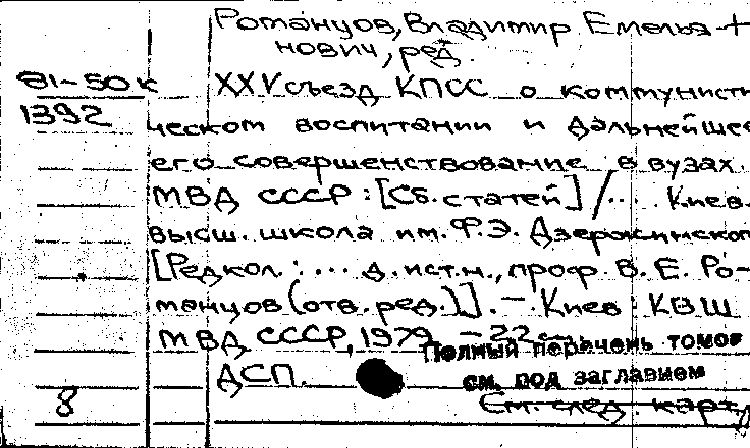 Романцов, Владимир Емелья-
нович, ред.
81-50к
XXV съезд КПСС о коммунисти
1392
ческом воспитании и дальнейшее
его совершенствование в вузах
МВД СССР : [Сб. статей] / ... Киев.
высш. школа им. Ф.Э. Дзержинского
[Редкол. : ... д. ист. н., проф. В. Е. Ро-
манцов (отв. ред.)]. — Киев : КВШ
МВД СССР, 1979 — 22 см
Полный перечень томов
ДСП.
см. под заглавием
8
См. след. карт